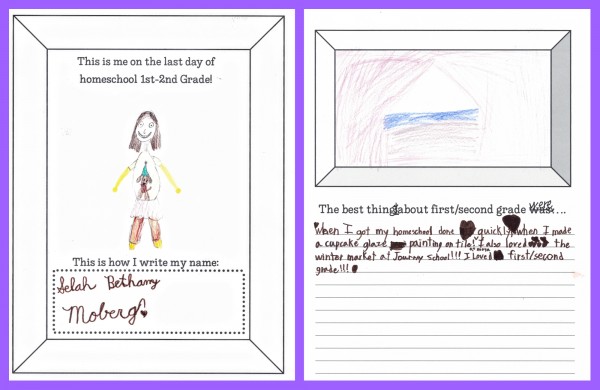 This is me on the last day of
homeschool 1st-2nd Grade!
This is how I write my name:
Selah Bethany
Moberg
The best things about first/second grade were...
When I got my homeschool done quickly when I made
a cupcake glaze painting on tile! I also loved the
winter market at Journey School!!! I Loved first/second
grade!!!